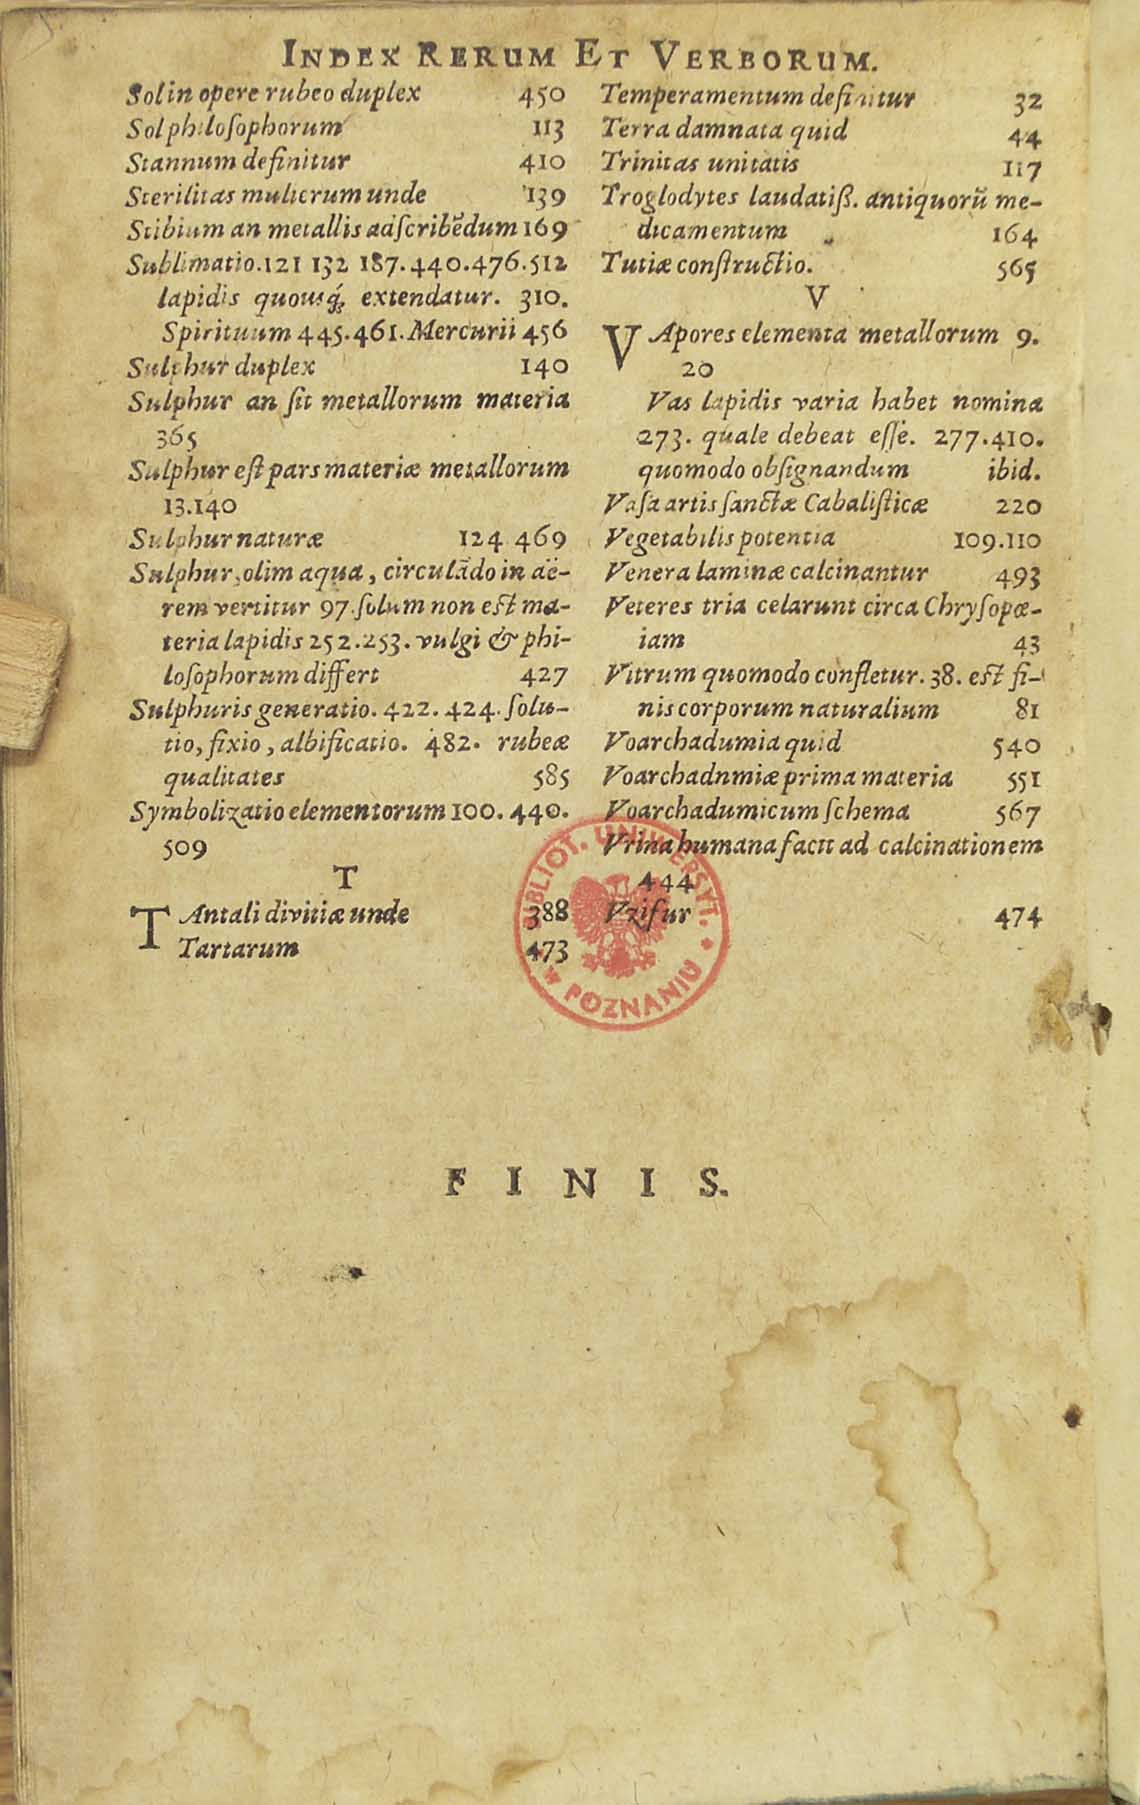 INDEX RERUM ET VERBORUM.
Sol in opere rubeo duplex 450
Sol philoſophorum 113
Stannum definitur 410
Sterilitas mulierum unde 139
Stibium an metallis adſcribẽdum 169
Sublimatio. 121 132 187. 440. 476. 512
lapidis quouſq́; extendatur. 310.
Spirituum 445. 461. Mercurii 456
Sulphur duplex 140
Sulphur an ſit metallorum materia
365
Sulphur eſt pars materiæ metallorum
13. 140
Sulphur naturæ 124 469
Sulphur, olim aqua, circulãdo in aë-
rem vertitur 97. ſolum non eſt ma-
teria lapidis 252. 253. vulgi & phi-
loſophorum differt 427
Sulphuris generatio. 422. 424. ſolu-
tio, fixio, albificatio. 482. rubeæ
qualitates 585
Symbolizatio elementorum 100. 440.
509
T
TAntali divitiæ unde 388
Tartarum 473
Temperamentum definitur 32
Terra damnata quid 44
Trinitas unitatis 117
Troglodytes laudatiß. antiquorũ me-
dicamentum 164
Tutiæ conſtructio. 565
V
VApores elementa metallorum 9.
20
Vas lapidis varia habet nomina
273. quale debeat eſſe. 277. 410.
quomodo obſignandum ibid.
Vaſa artis ſanctæ Cabaliſticæ 220
Vegetabilis potentia 109. 110
Venera laminæ calcinantur 493
Veteres tria celarunt circa Chryſopœ-
iam 43
Vitrum quomodo confletur. 38. eſt fi-
nis corporum naturalium 81
Voarchadumia quid 540
Voarchadnmiæ prima materia 551
Voarchadumicum ſchema 567
Vrina humana facit ad calcinationem
444
Vzifur 474
BIBLIOT. UNIWERSYT.
W POZNANIU
FINIS.